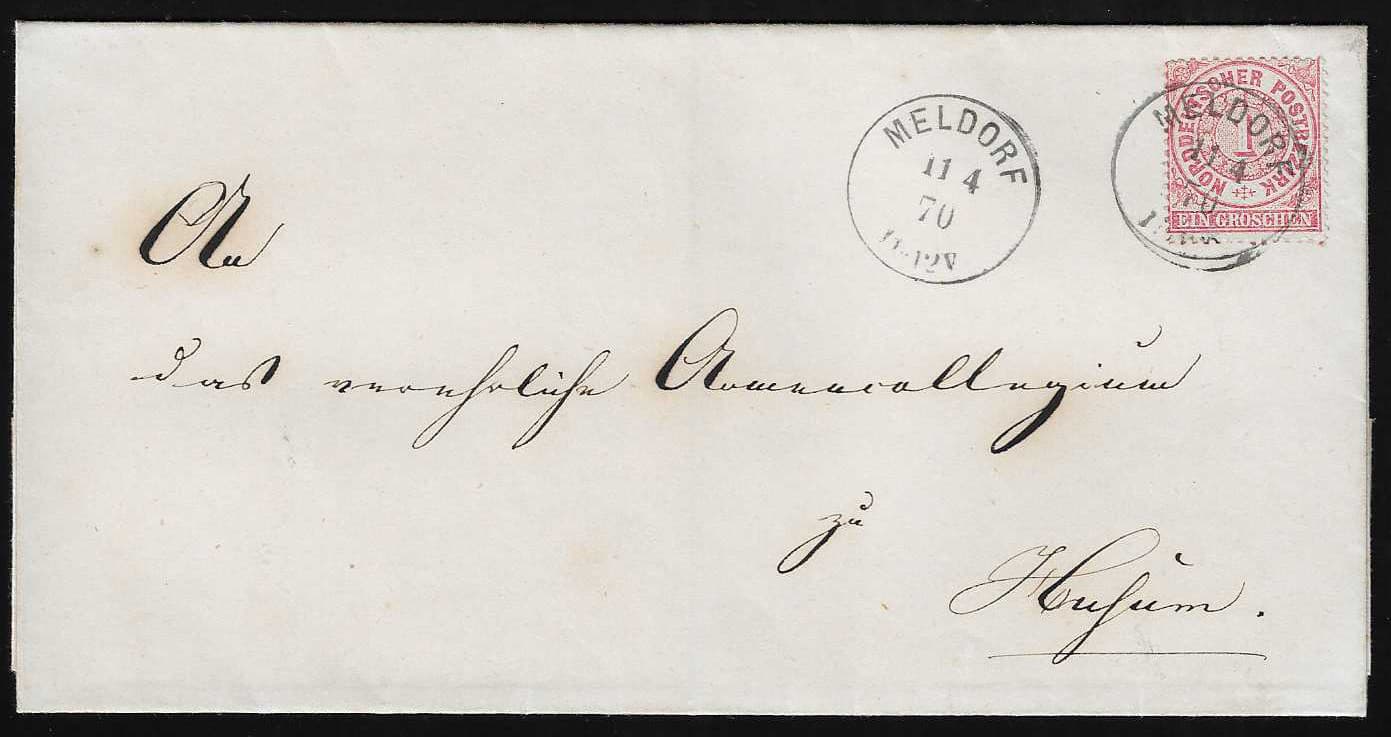 MELDORF
11 4
70
11-12V
NORDDEUTSCHER POSTBEZIRK
1
EIN GROSCHEN
MELDORF
11 4
70
An
das verehrliche Armencollegium
zu
Husum.